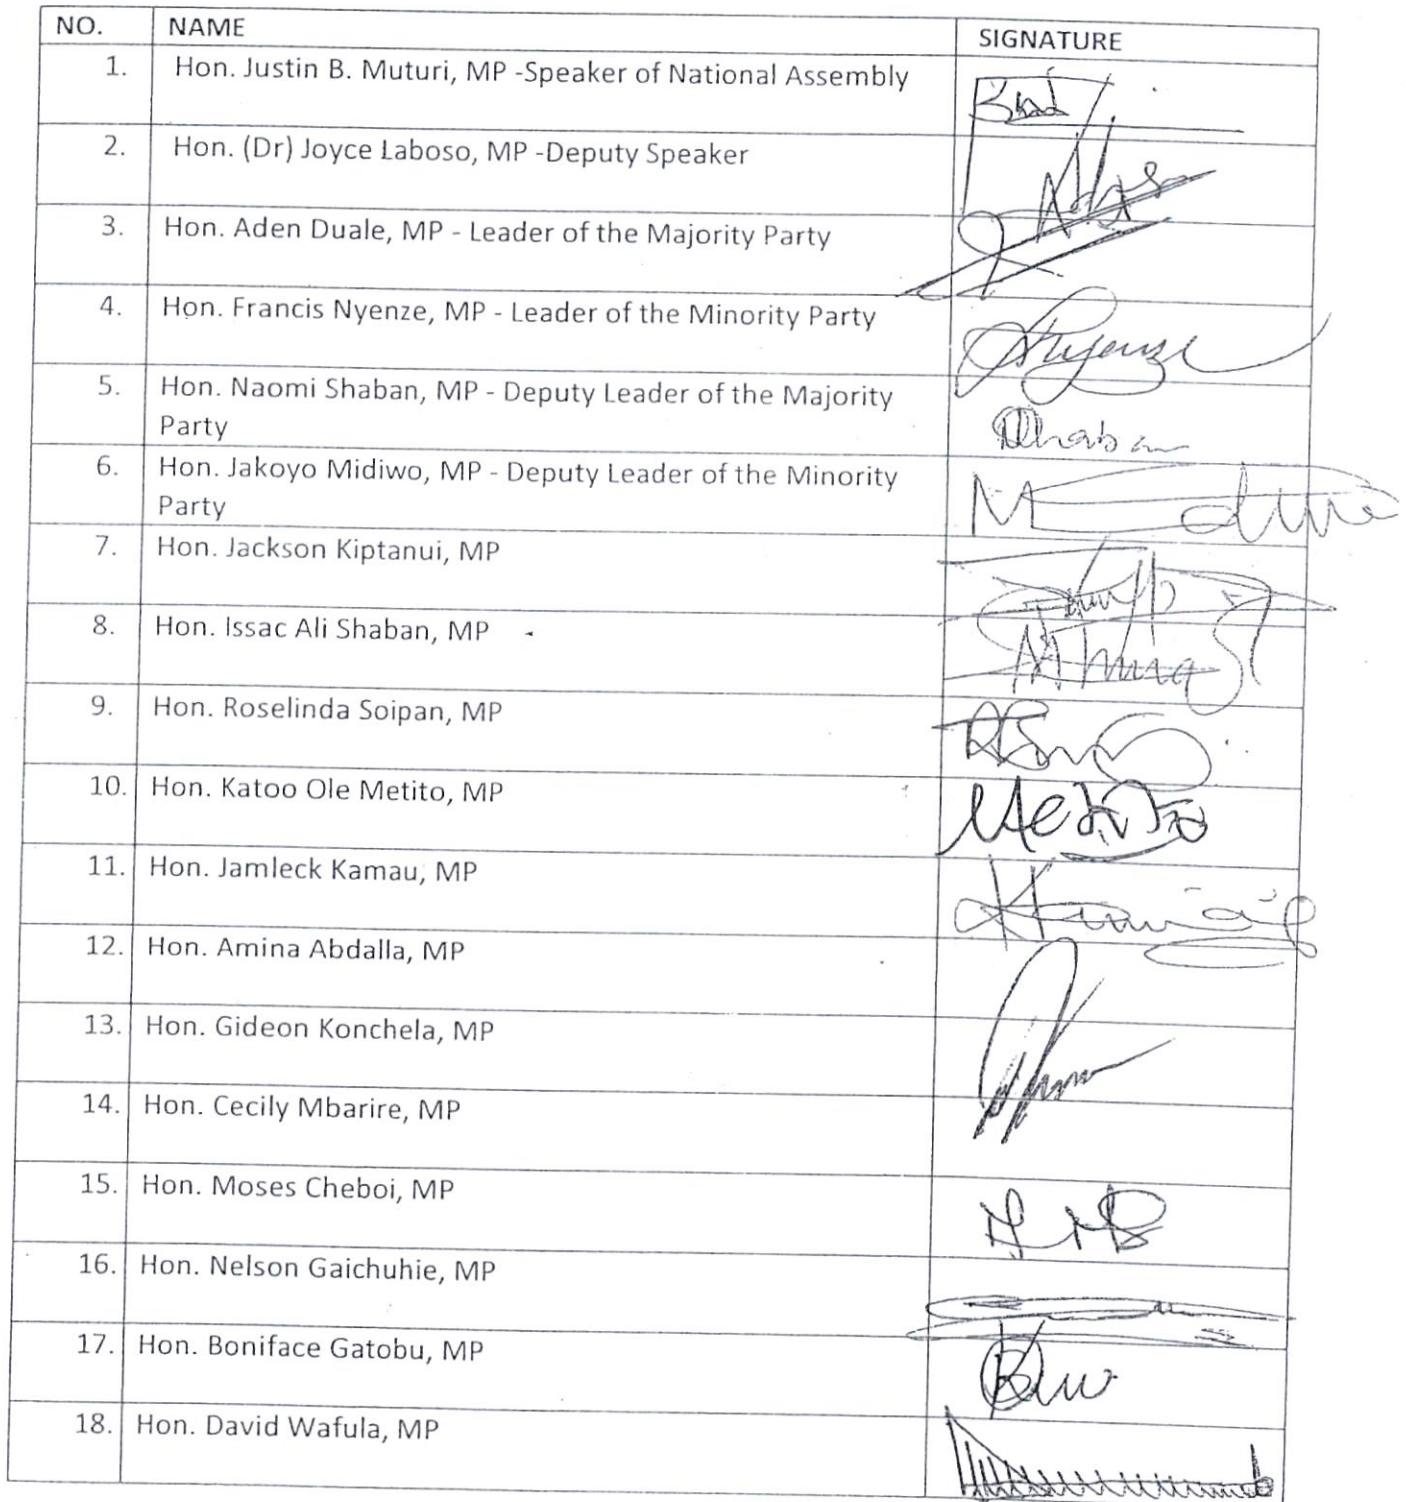 NO. NAME SIGNATURE
1. Hon. Justin B. Muturi, MP -Speaker of National Assembly
2. Hon. (Dr) Joyce Laboso, MP -Deputy Speaker
3. Hon. Aden Duale, MP - Leader of the Majority Party
4. Hon. Francis Nyenze, MP - Leader of the Minority Party
5. Hon. Naomi Shaban, MP - Deputy Leader of the Majority
Party
6. Hon. Jakoyo Midiwo, MP - Deputy Leader of the Minority
Party
7. Hon. Jackson Kiptanui, MP
8. Hon. Issac Ali Shaban, MP
9. Hon. Roselinda Soipan, MP
10. Hon. Katoo Ole Metito, MP
11. Hon. Jamleck Kamau, MP
12. Hon. Amina Abdalla, MP
13. Hon. Gideon Konchela, MP
14. Hon. Cecily Mbarire, MP
15. Hon. Moses Cheboi, MP
16. Hon. Nelson Gaichuhie, MP
17. Hon. Boniface Gatobu, MP
18. Hon. David Wafula, MP